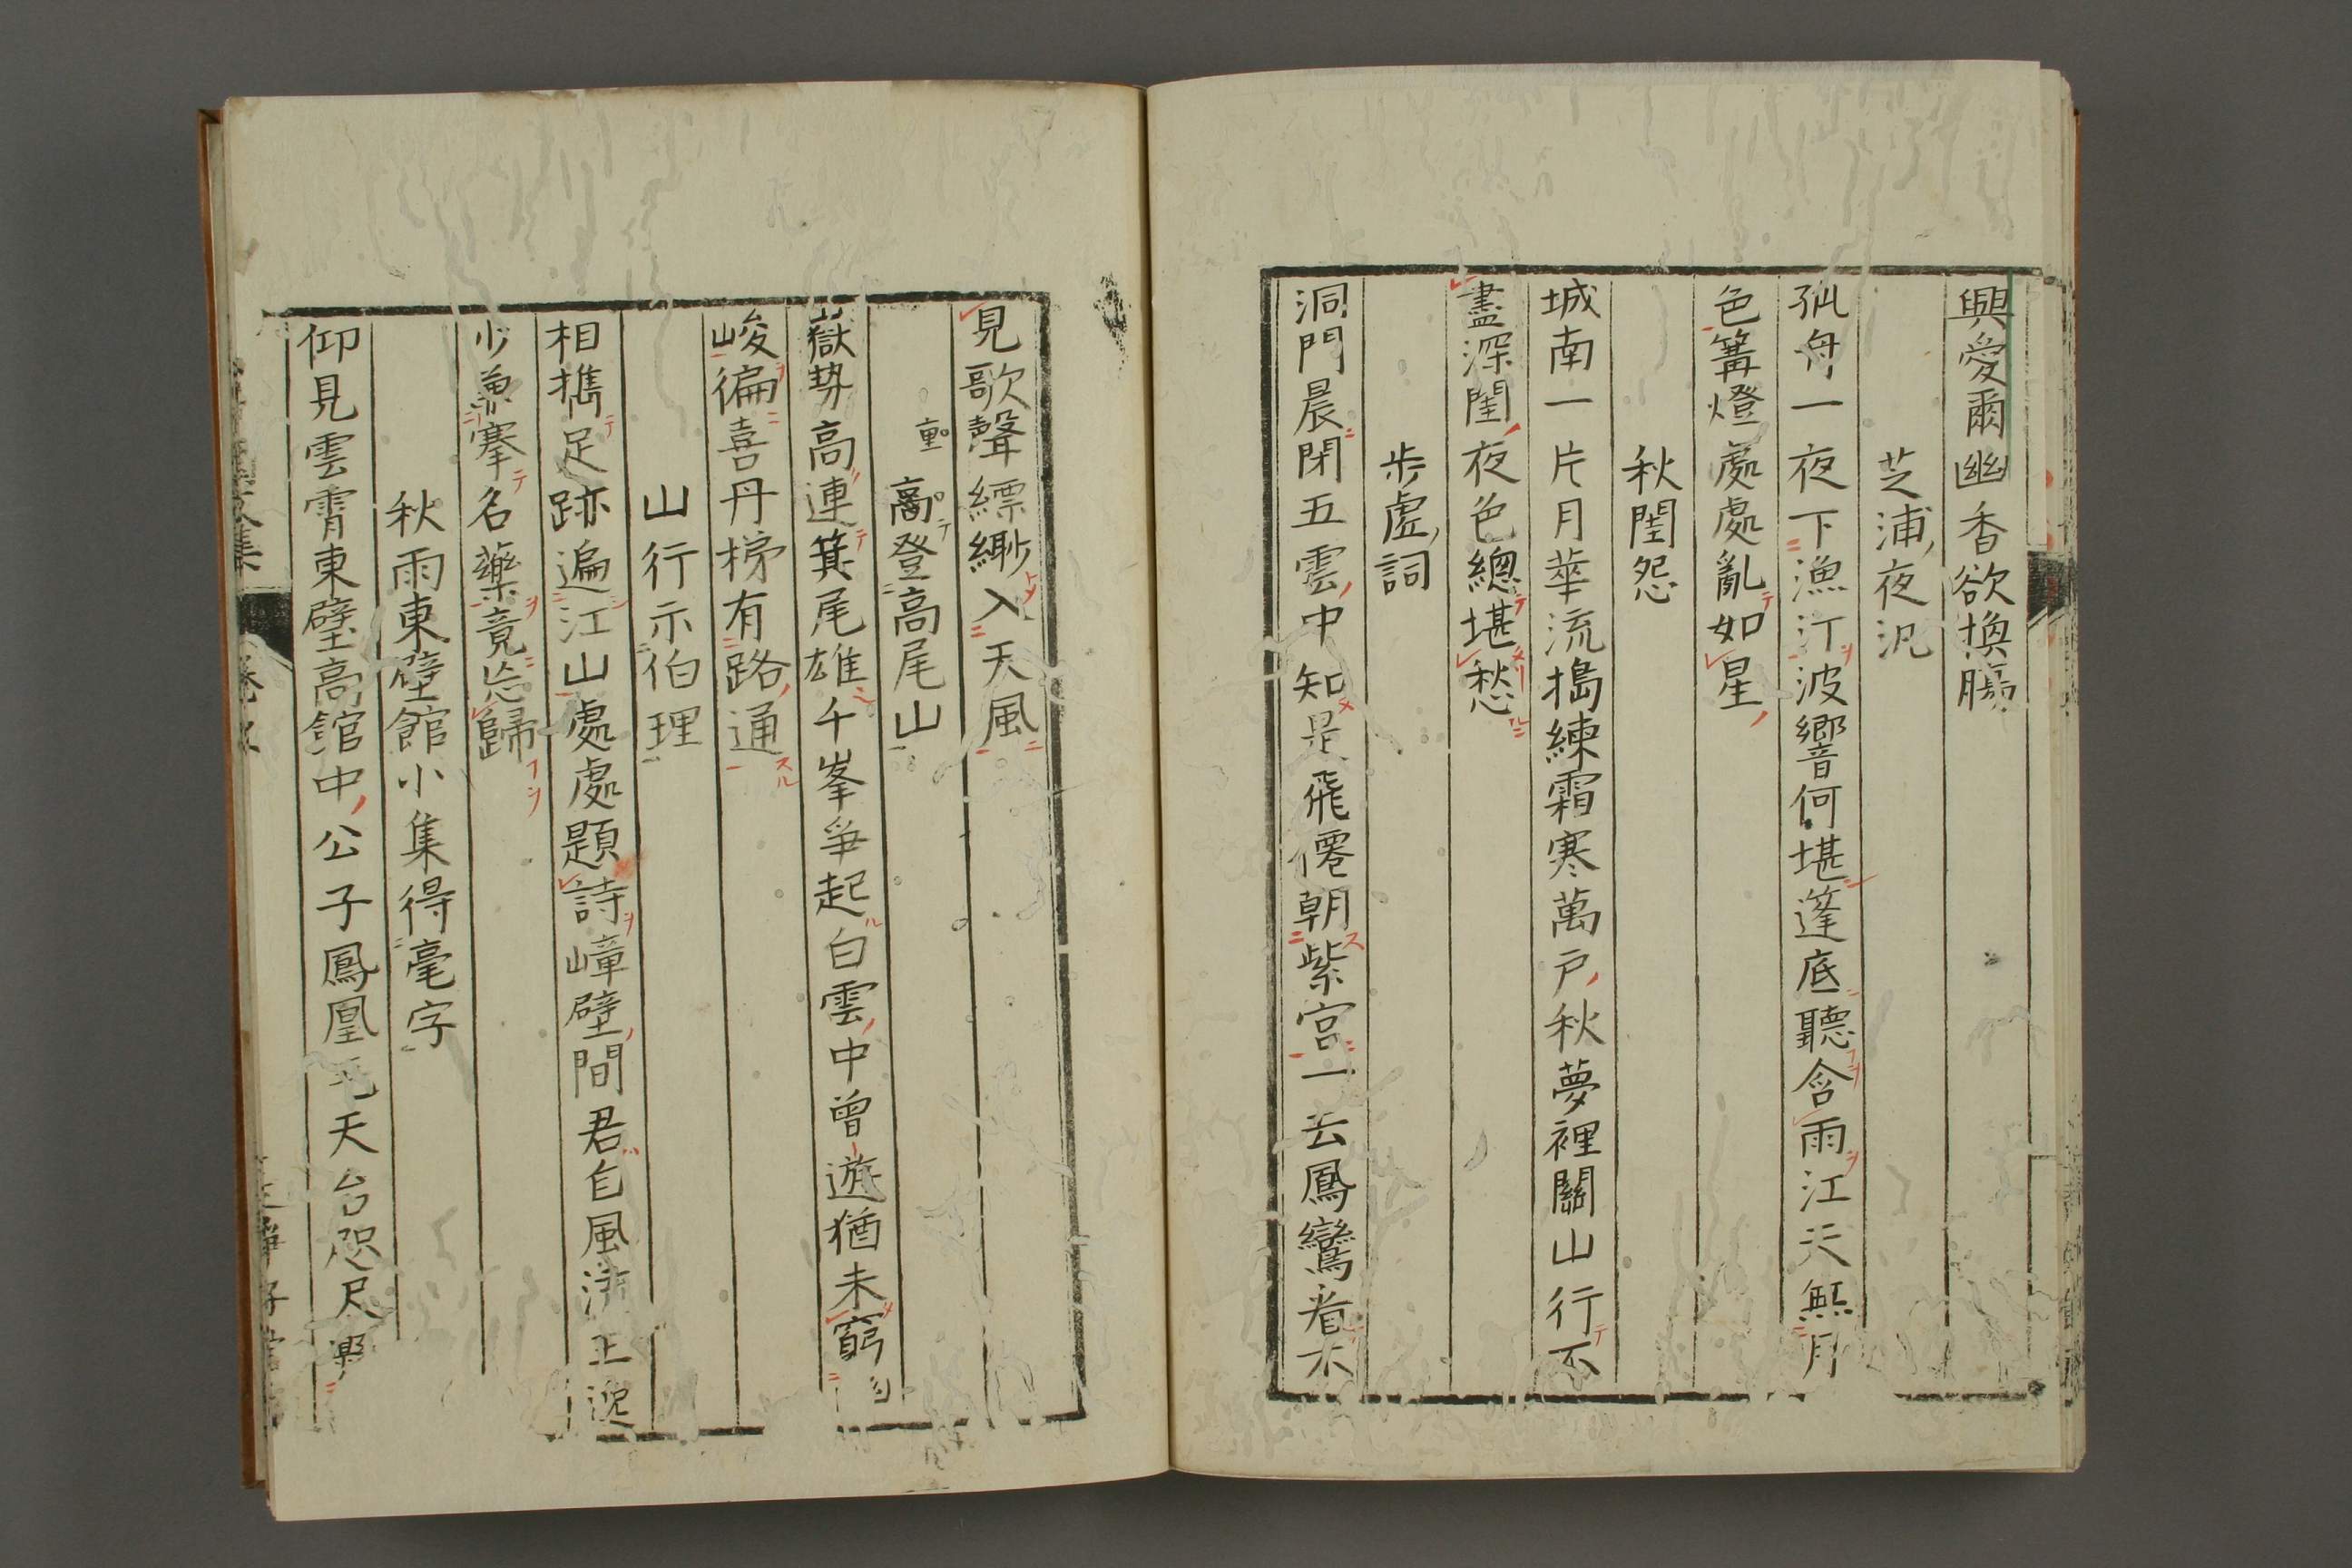 興愛爾幽香欲換膓
芝浦夜汎
孤舟一夜下漁汀波響何堪篷底聽含雨江天無月
色篝燈處處亂如星
秋閨怨
城南一片月華流搗練霜寒萬戸秋夢裡關山行不
盡深閨夜色總堪愁
步虛詞
洞門晨閉五雲中知是飛僊朝紫宮一去鳳鸞看不
見歌聲縹緲入天風
重高登高尾山
嶽勢高連箕尾雄千峯爭起白雲中曾遊猶未窮
峻徧喜丹梯有路通
山行示伯理
相携足跡遍江山處處題詩嶂壁間君自風流
少兼搴名藥竟忘歸
秋雨東壁館小集得毫字
仰見雲霄東壁高館中公子鳳凰毛天台咫尺興